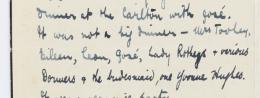 Dinner at the Carlton with José.
It was not a big dinner – Mrs Tooley,
Eileen, Lean, José, Lady Rothesy + various
Bowers + the bridesmaid, one Yvonne Hughes.